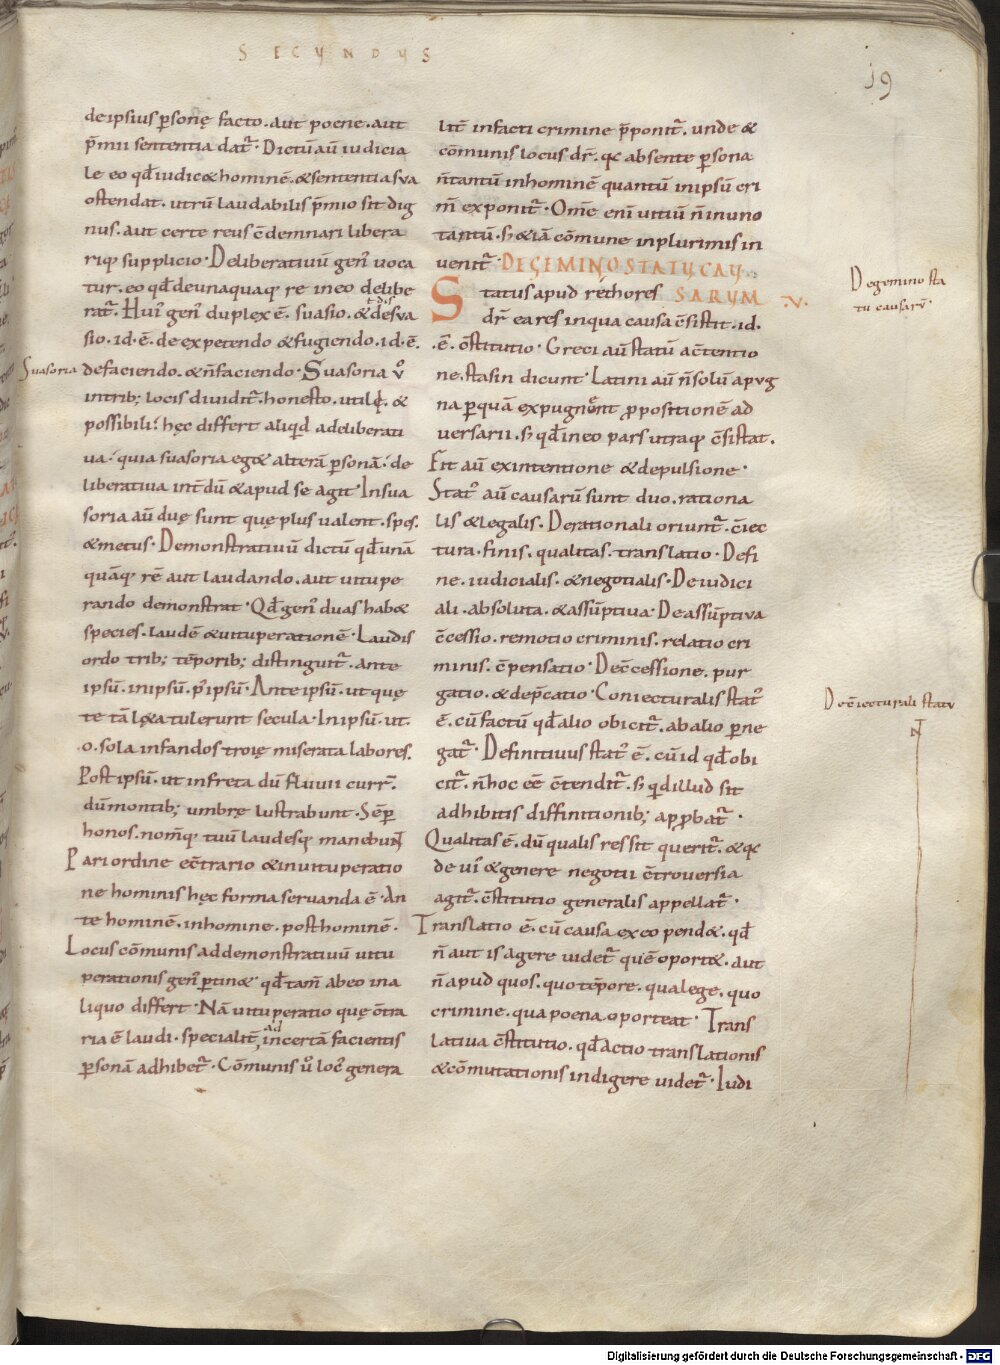 SECUNDUS
19
de ipsius p̄sonę facto. aut poene. aut
p̄mii sententia dat᷑. Dictū aū iudicia
le eo qđ iudic& hominē. & sententia sua
ostendat. utrū laudabilis p̄mio sit dig
nus. aut certe reus c̄demnari libera
riq; supplicio. Deliberatiuū gen᷒ uoca
tur. eo qđ de unaquaq; re in eo delibe
rat᷑. Hui᷒ gen᷒ duplex ē. suasio. & desua
sio. id. ē. de expetendo & fugiendo. id. ē.
Suasoria
de faciendo. & n̄ faciendo. Suasoria ū
in trib; locis diuidit᷑. honesto. utile. &
possibili. hęc differt aliqđ a deliberati
ua. quia suasoria eg& alterā p̄sonā. de
liberatiua int̄dū & apud se agit. In sua
soria aū duę sunt quę plus ualent. spes.
& metus. Demonstratiuū dictū qđ unā
quāq; rē aut laudando. aut uitupe
rando demonstrat. Qđ gen᷒ duas hab&
species. laudē & uituperationē. Laudis
ordo trib; tēporib; distinguit᷑. ante
ipsū. in ipsū. p᷒ ipsū. Ante ipsū. ut quę
te tā lęta tulerunt secula. In ipsū. ut.
o. sola infandos troię miserata labores.
Post ipsū. ut in freta dū fluuii curr᷑.
dū montib; umbrę lustrabunt. Sēp
honos. nomq; tuū laudesq; manebunt
Pari ordine ec̄trario & in uituperatio
ne hominis hęc forma seruanda ē. An
te hominē. in homine. post hominē.
Locus cōmunis ad demonstratiuū uitu
perationis gen᷒ ptin&. qđ tam̄ ab eo in a
liquo differt. Nā uituperatio quę c̄tra
ria ē laudi. specialit̄ ad in certā facientis
p̄sonā adhibet᷑. Cōmunis ū loc᷒ genera
lit̄ in facti crimine p̄ponit᷑. unde &
cōmunis locus dr̄. q̨ absente p̄sona
n̄ tantū in hominē quantū in ipsū cri
m̄ exponit᷑. Om̄e eni uitiū n̄ in uno
tantū. s; & iā cōmune in plurimis in
uenit᷑. DE GEMINO STATU CAU
SARUM .V.
Status apud rethores
dr̄ ea res in qua causa c̄sistit. id.
.ē. c̄stitutio. Greci aū statū a c̄tentio
ne. stasin dicunt. Latini aū n̄ solū a pug
na p quā expugnent ppositionē ad
uersarii. s; qđ in eo pars utraq; c̄sistat.
Fit aū ex intentione & depulsione.
Stat᷒ aū causarū sunt duo. rationa
lis & legalis. De rationali oriunt᷑. c̄iec
tura. finis. qualitas. translatio. De fi
ne. iudicialis. & negotialis. De iudici
ali. absoluta. & assūptiua. De assūptiva
c̄cessio. remotio criminis. relatio cri
minis. c̄pensatio. De c̄cessione. pur
gatio. & dep̄catio. Coniecturalis stat᷒
ē. cū factū qđ alio obicit᷑. ab alio p̄ne
gat᷑. Definitiuus stat᷒ ē. cū id qđ obi
cit᷑. n̄ hoc eē c̄tendit᷑. s; qđ illud sit
adhibitis diffinitionib; app̄bat᷑.
Qualitas ē. dū qualis res sit querit᷑. & q̨
de ui᷒ & genere negotii c̄trouersia
agit᷑. c̄stitutio generalis appellat᷑.
Translatio ē. cū causa ex eo pend&. qđ
n̄ aut is agere uidet᷑ quē oport&. aut
n̄ apud quos. quo tēpore. qua lege. quo
crimine. qua poena. oporteat. Trans
latiua c̄stitutio. qđ Actio translationis
& cōmutationis indigere uidet᷑. Iudi
De gemino sta
tu causarū.
De c̄iecturali statu
Digitalisierung gefördert durch die Deutsche Forschungsgemeinschaft - DFG